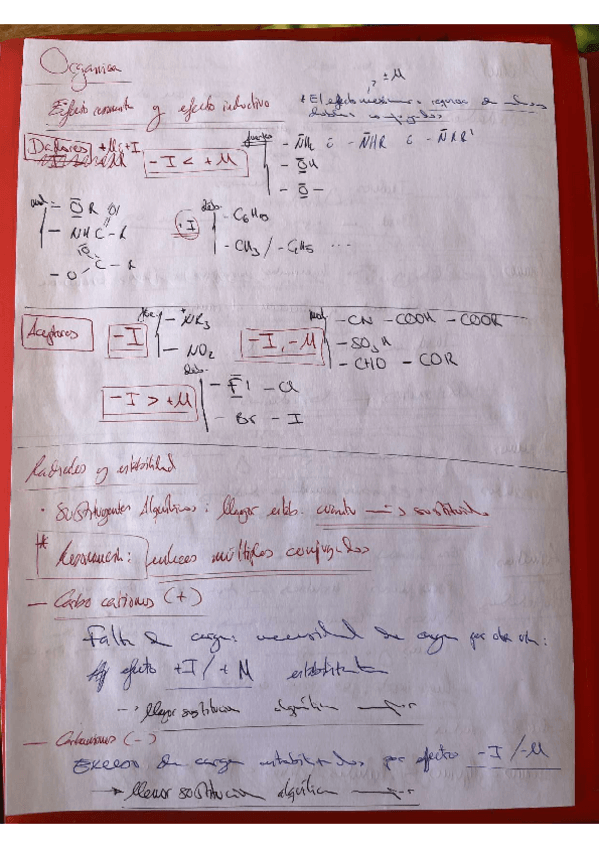 Orgánica
± M
Efecto mesómero y efecto inductivo
* El efecto mesómero requiere de
Dadores + M; + I
- I < + M
fuertes
- NH₂ ó - NHR ó - NRR'
- OH
- O -
- OR
- NHC - R
O
- O - C - R
+ I
deb.
- C₆H₅
- CH₃ / - C₂H₅ ...
Aceptores
- I
- NR₃
- NO₂
- I, - M
- CN - COOH - COOR
- SO₃H
- CHO - COR
- I > + M
deb.
- F - Cl
- Br - I
Radicales y estabilidad
· Sustituyentes Alquílicos: Mayor estab. cuanto → sustituido
* Resonancia: Enlaces múltiples conjugados
- Carbocationes (+)
Falta de carga: necesidad de carga por otra vía:
efecto + I / + M estabilizante
→ Mayor sustitución alquílica
- Carbaniones (-)
Exceso de carga estabilizados por efecto - I / - M
→ Menor sustitución alquílica